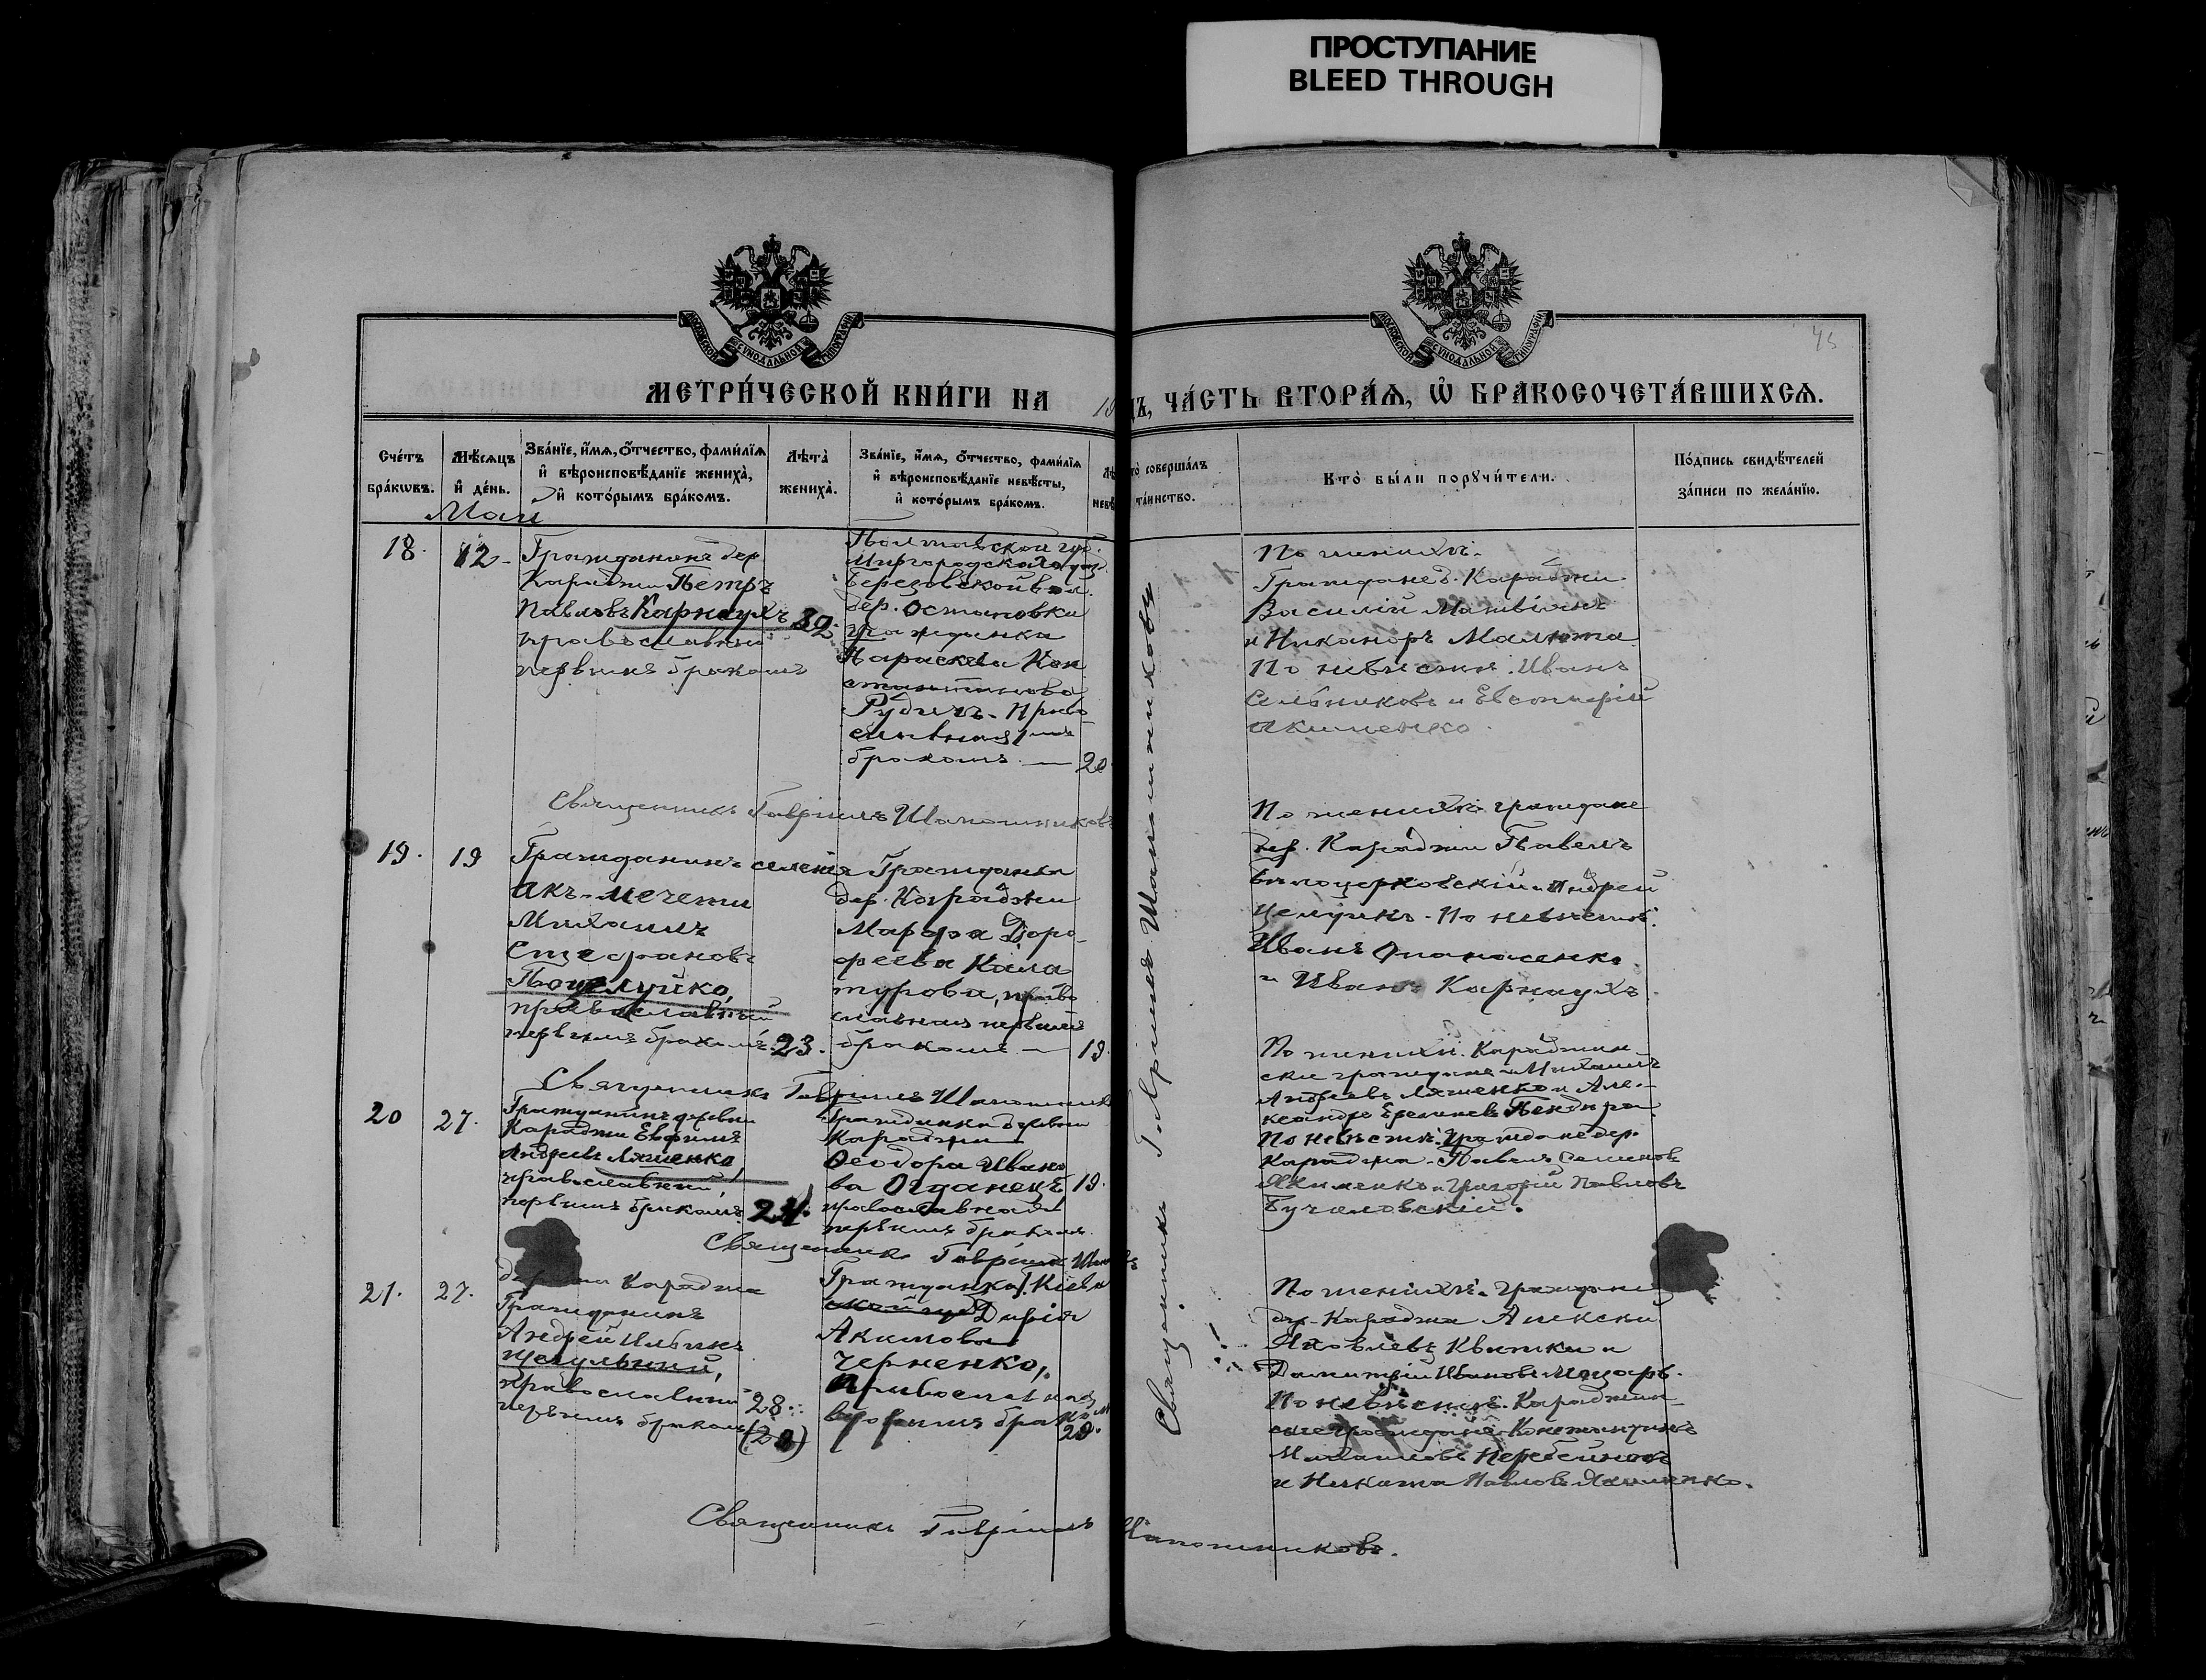 ПРОСТУПАНИЕ
BLEED THROUGH
МОСКОВСКОЙ СѴНОДАЛЬНОЙ ТИПОГРАФІИ
МОСКОВСКОЙ СѴНОДАЛЬНОЙ ТИПОГРАФІИ
45
МЕТРИ́ЧЕСКОЙ КНИ́ГИ НА 19
ДЪ, ЧА́СТЬ ВТОРА́Ѧ, Ѽ БРАКОСОЧЕТА́ВШИХСѦ.
Сче́тъ
бра́кѡвъ.
Мѣ́сѧцъ
и҆ де́нь.
Зва́нїе, и҆́мѧ, ѻ҆́тчество, фами́лїѧ
и҆ вѣроисповѣ́данїе жениха̀,
и҆ кото́рымъ бра́комъ.
Лѣта̀
жениха̀.
Зва́нїе, и҆́мѧ, ѻ҆́тчество, фами́лїѧ
и҆ вѣроисповѣ́данїе невѣ́сты,
и҆ кото́рымъ бра́комъ.
Лѣ
невѣ
то̀ соверша́лъ
та́инство.
Кто̀ бы́ли порꙋчи́тели.
По́дпись свидѣ́телей
за́писи по жела́нїю.
Маи
18.
12-
Гражданинъ дер
Караджи Петръ
Павловъ Карнаухъ
православный
первымъ бракомъ
32.
Полтавской губ.
Миргородскаго уѣзд.
Березовской вол.
дер. Остаповки
гражданка
Параскева Кон
стантинова
Рудичъ - Право
славная 1мъ
бракомъ — 20
По женихѣ:
Граждане д. Караджи
Василій
и Никаноръ Малюта
По невѣстѣ: Иванъ
Сельниковъ и Евстафій
Акименко.
Священникъ Гавріилъ Шапошниковъ
19.
19
Гражданинъ селенія
Акъ-Мечети
Михаилъ
Стефановъ
Поцелуйко,
православный
первымъ бракомъ 23.
Гражданка
дер. Караджи
Марфа Доро-
феева Кала
турова, право
славная первымъ
бракомъ — 19.
По женихѣ: граждане
дер. Караджи Павелъ
Бѣлоцерковскій и Андрей
По невѣстѣ:
Иванъ Опанасенко
и Иванъ Карнаухъ.
Священникъ Гавріилъ Шапошник
20
27.
Гражданинъ деревни
Караджи Евфимъ
Андреевъ Ляшенко
православный,
первымъ бракомъ. 24.
Гражданка деревни
Караджи
Ѳеодора Ивано
ва 19.
православная
первымъ бракомъ.
По женихѣ. Караджин
ски граждане Михаилъ
Андреевъ Ляшенко и Але-
ксандръ
По невѣстѣ: Граждане дер.
Караджа - Павелъ Семеновъ
Якименко и Григорій Павловъ
Бучаловскій.
Священникъ Гавріилъ
21.
27.
Караджа
Гражданинъ
Андрей Ильинъ
православный
первымъ бракомъ
28
(28)
Гражданка г. Кіева
Дарія
Акимова
Черненко,
Православная
вторымъ бракомъ
29.
По женихѣ: граждане
дер. Караджа Алексѣй
Яковлевъ Квитка и
Димитрій Ивановъ
По невѣстѣ. Караджин-
ские граждане Константинъ
Михаиловъ
и Никита Павловъ Якименко.
Священникъ Гавріилъ Шапошниковъ.
Священникъ Гавріилъ Шапошниковъ